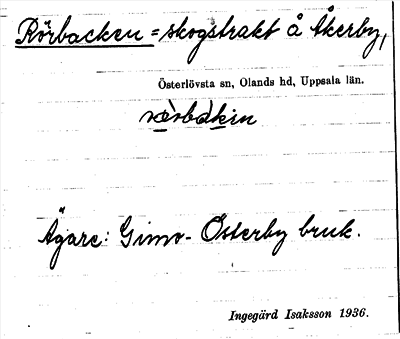 Rörbacken = skogstrakt å Åkerby,
Österlövsta sn, Olands hd, Uppsala län.
Ägare: Gimo-Österby bruk.
Ingegärd Isaksson 1936.